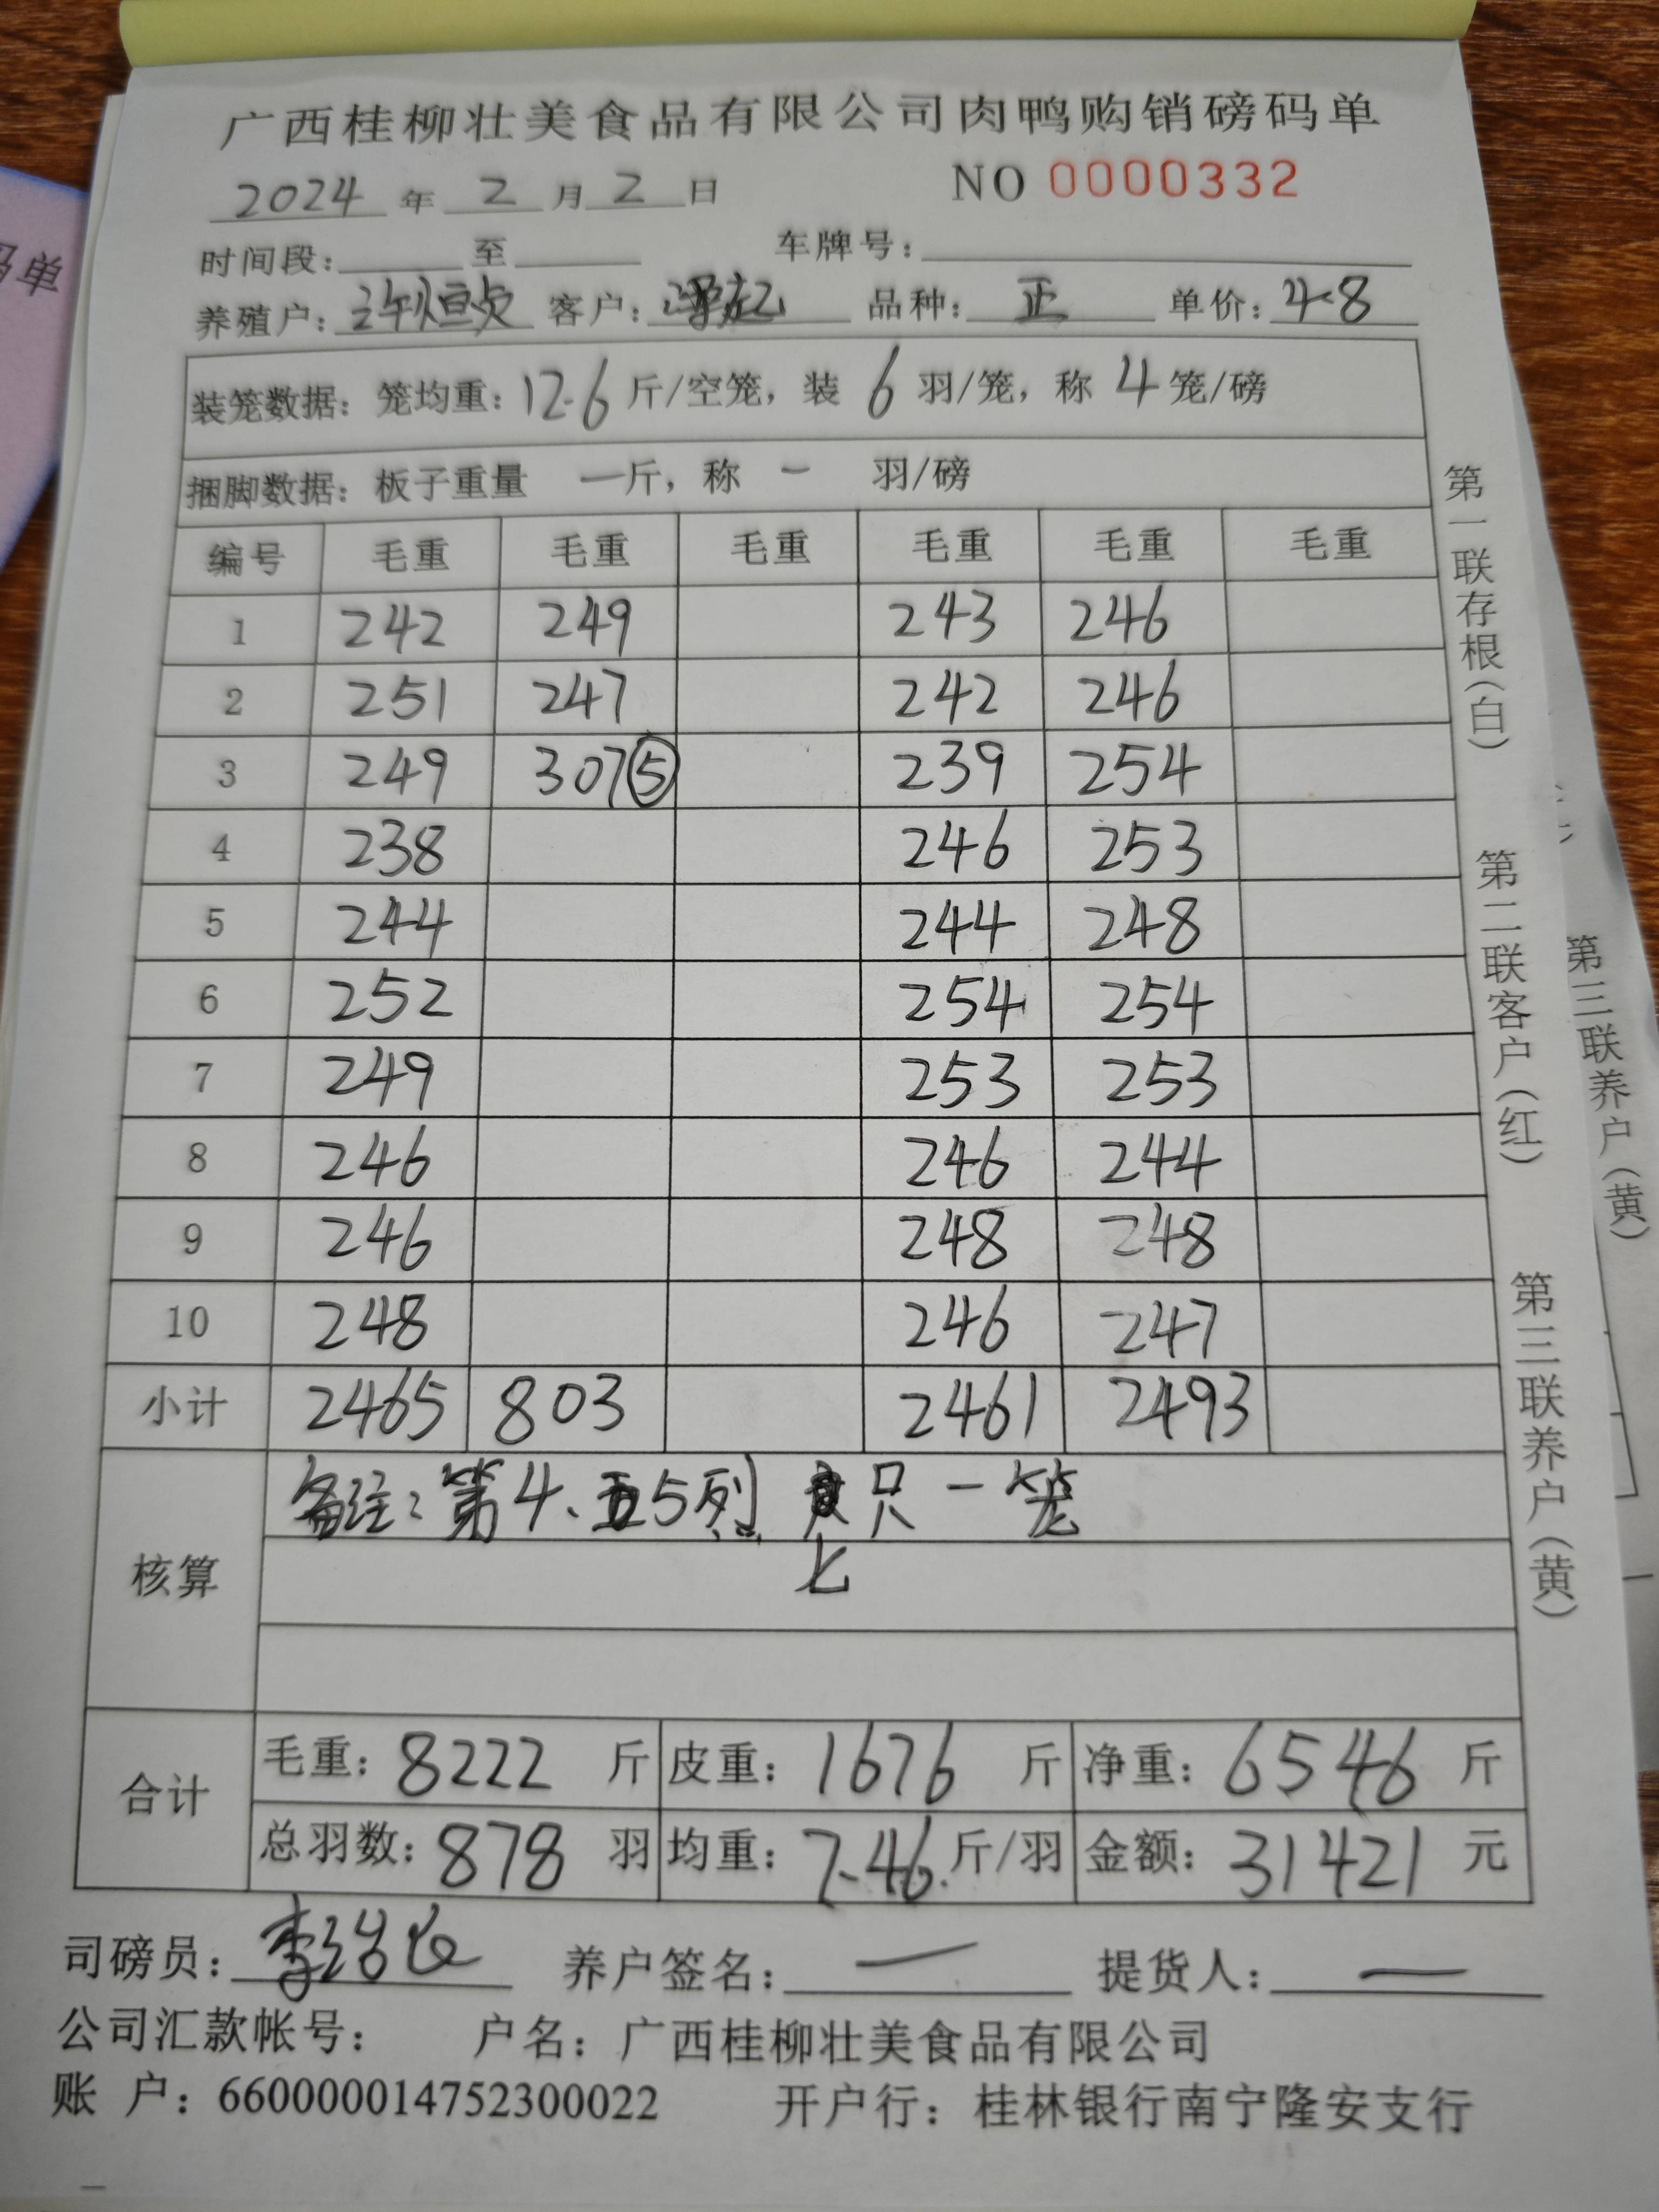 广西桂柳壮美食品有限公司肉鸭购销磅码单
2024 年 2 月 2 日 NO 0000332
时间段: 至 车牌号:
养殖户: 许恒贞 客户: 品种: 正 单价: 4.8
装笼数据: 笼均重: 12.6 斤/空笼, 装 6 羽/笼, 称 4 笼/磅
捆脚数据: 板子重量 一斤, 称 一 羽/磅
编号 毛重 毛重 毛重 毛重 毛重 毛重
1 242 249 243 246
2 251 247 242 246
3 249 307⑤ 239 254
4 238 246 253
5 244 244 248
6 252 254 254
7 249 253 253
8 246 246 244
9 246 248 248
10 248 246 247
小计 2465 803 2461 2493
核算 备注: 第4、5列 只一笼
七
合计 毛重: 8222 斤 皮重: 1676 斤 净重: 6546 斤
总羽数: 878 羽 均重: 7.46 斤/羽 金额: 31421 元
司磅员: 养户签名: 一 提货人: 一
公司汇款帐号: 户名: 广西桂柳壮美食品有限公司
账 户: 660000014752300022 开户行: 桂林银行南宁隆安支行
第一联存根(白)
第二联客户(红)
第三联养户(黄)
第三联养户(黄)
码单